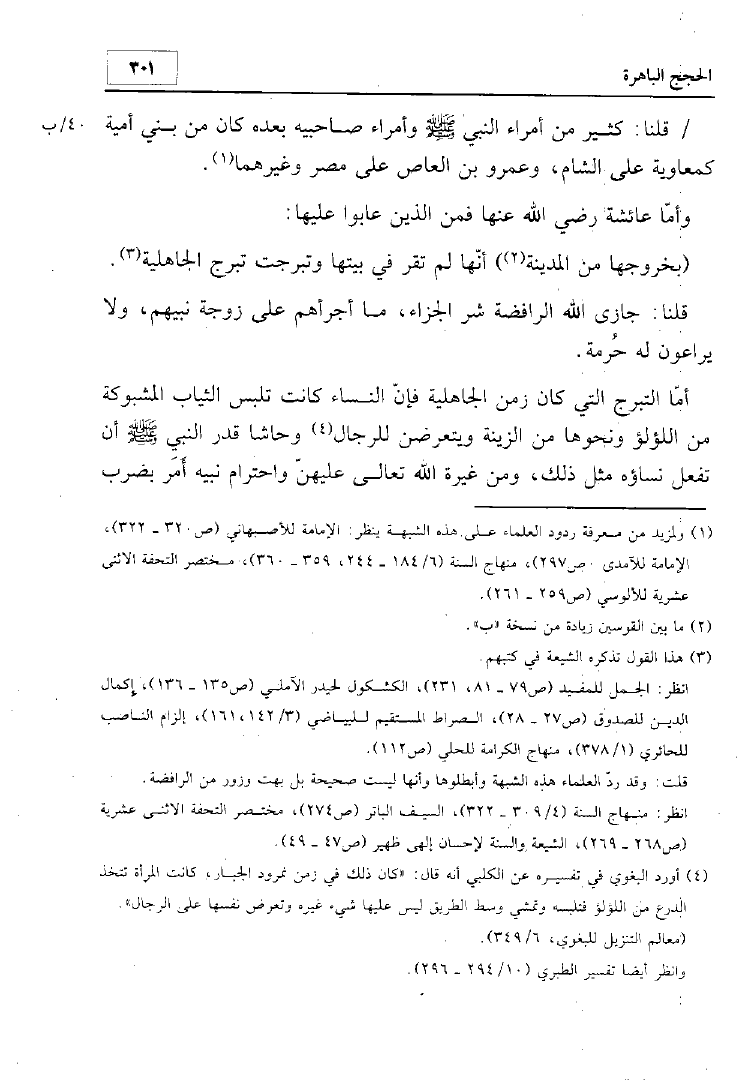 الحجج الباهرة ٣٠١
/ قلنا: كثير من أمراء النبي ﷺ وأمراء صاحبيه بعده كان من بني أمية ٤٠/ب
كمعاوية على الشام، وعمرو بن العاص على مصر وغيرهما(١).
وأمّا عائشة رضي الله عنها فمن الذين عابوا عليها:
(بخروجها من المدينة(٢)) أنّها لم تقر في بيتها وتبرجت تبرج الجاهلية(٣).
قلنا: جازى الله الرافضة شر الجزاء، ما أجرأهم على زوجة نبيهم، ولا
يراعون له حُرمة.
أمّا التبرج التي كان زمن الجاهلية فإنّ النساء كانت تلبس الثياب المشبوكة
من اللؤلؤ ونحوها من الزينة ويتعرضن للرجال(٤) وحاشا قدر النبي ﷺ أن
تفعل نساؤه مثل ذلك، ومن غيرة الله تعالى عليهنّ واحترام نبيه أَمَرَ بضرب
(١) ولمزيد من معرفة ردود العلماء على هذه الشبهة ينظر: الإمامة للأصبهاني (ص٣٢٠ - ٣٢٢)،
الإمامة للآمدي (ص٢٩٧)، منهاج السنة (٦/ ١٨٤ - ٢٤٤، ٣٥٩ - ٣٦٠)، مختصر التحفة الاثنى
عشرية للألوسي (ص٢٥٩ - ٢٦١).
(٢) ما بين القوسين زيادة من نسخة «ب».
(٣) هذا القول تذكره الشيعة في كتبهم.
انظر: الجمل للمفيد (ص٧٩ - ٨١، ٢٣١)، الكشكول لحيدر الآملي (ص١٣٥ - ١٣٦)، إكمال
الدين للصدوق (ص٢٧ - ٢٨)، الصراط المستقيم للبياضي (٣/ ١٤٢، ١٦١)، إلزام الناصب
للحائري (١/ ٣٧٨)، منهاج الكرامة للحلي (ص١١٢).
قلت: وقد ردّ العلماء هذه الشبهة وأبطلوها وأنها ليست صحيحة بل بهت وزور من الرافضة.
انظر: منهاج السنة (٤/ ٣٠٩ - ٣٢٢)، السيف الباتر (ص٢٧٤)، مختصر التحفة الاثنى عشرية
(ص٢٦٨ - ٢٦٩)، الشيعة والسنة لإحسان إلهى ظهير (ص٤٧ - ٤٩).
(٤) أورد البغوي في تفسيره عن الكلبي أنه قال: «كان ذلك في زمن نمرود الجبار، كانت المرأة تتخذ
الدرع من اللؤلؤ فتلبسه وتمشي وسط الطريق ليس عليها شيء غيره وتعرض نفسها على الرجال».
(معالم التنزيل للبغوي، ٦/ ٣٤٩).
وانظر أيضا تفسير الطبري (١٠/ ٢٩٤ - ٢٩٦).